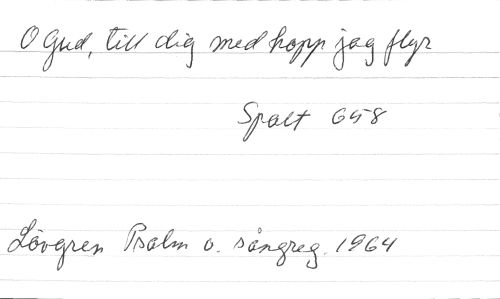 O Gud, till dig med hopp jag flyr
Spalt 658
Lövgren Psalm o. sångreg. 1964